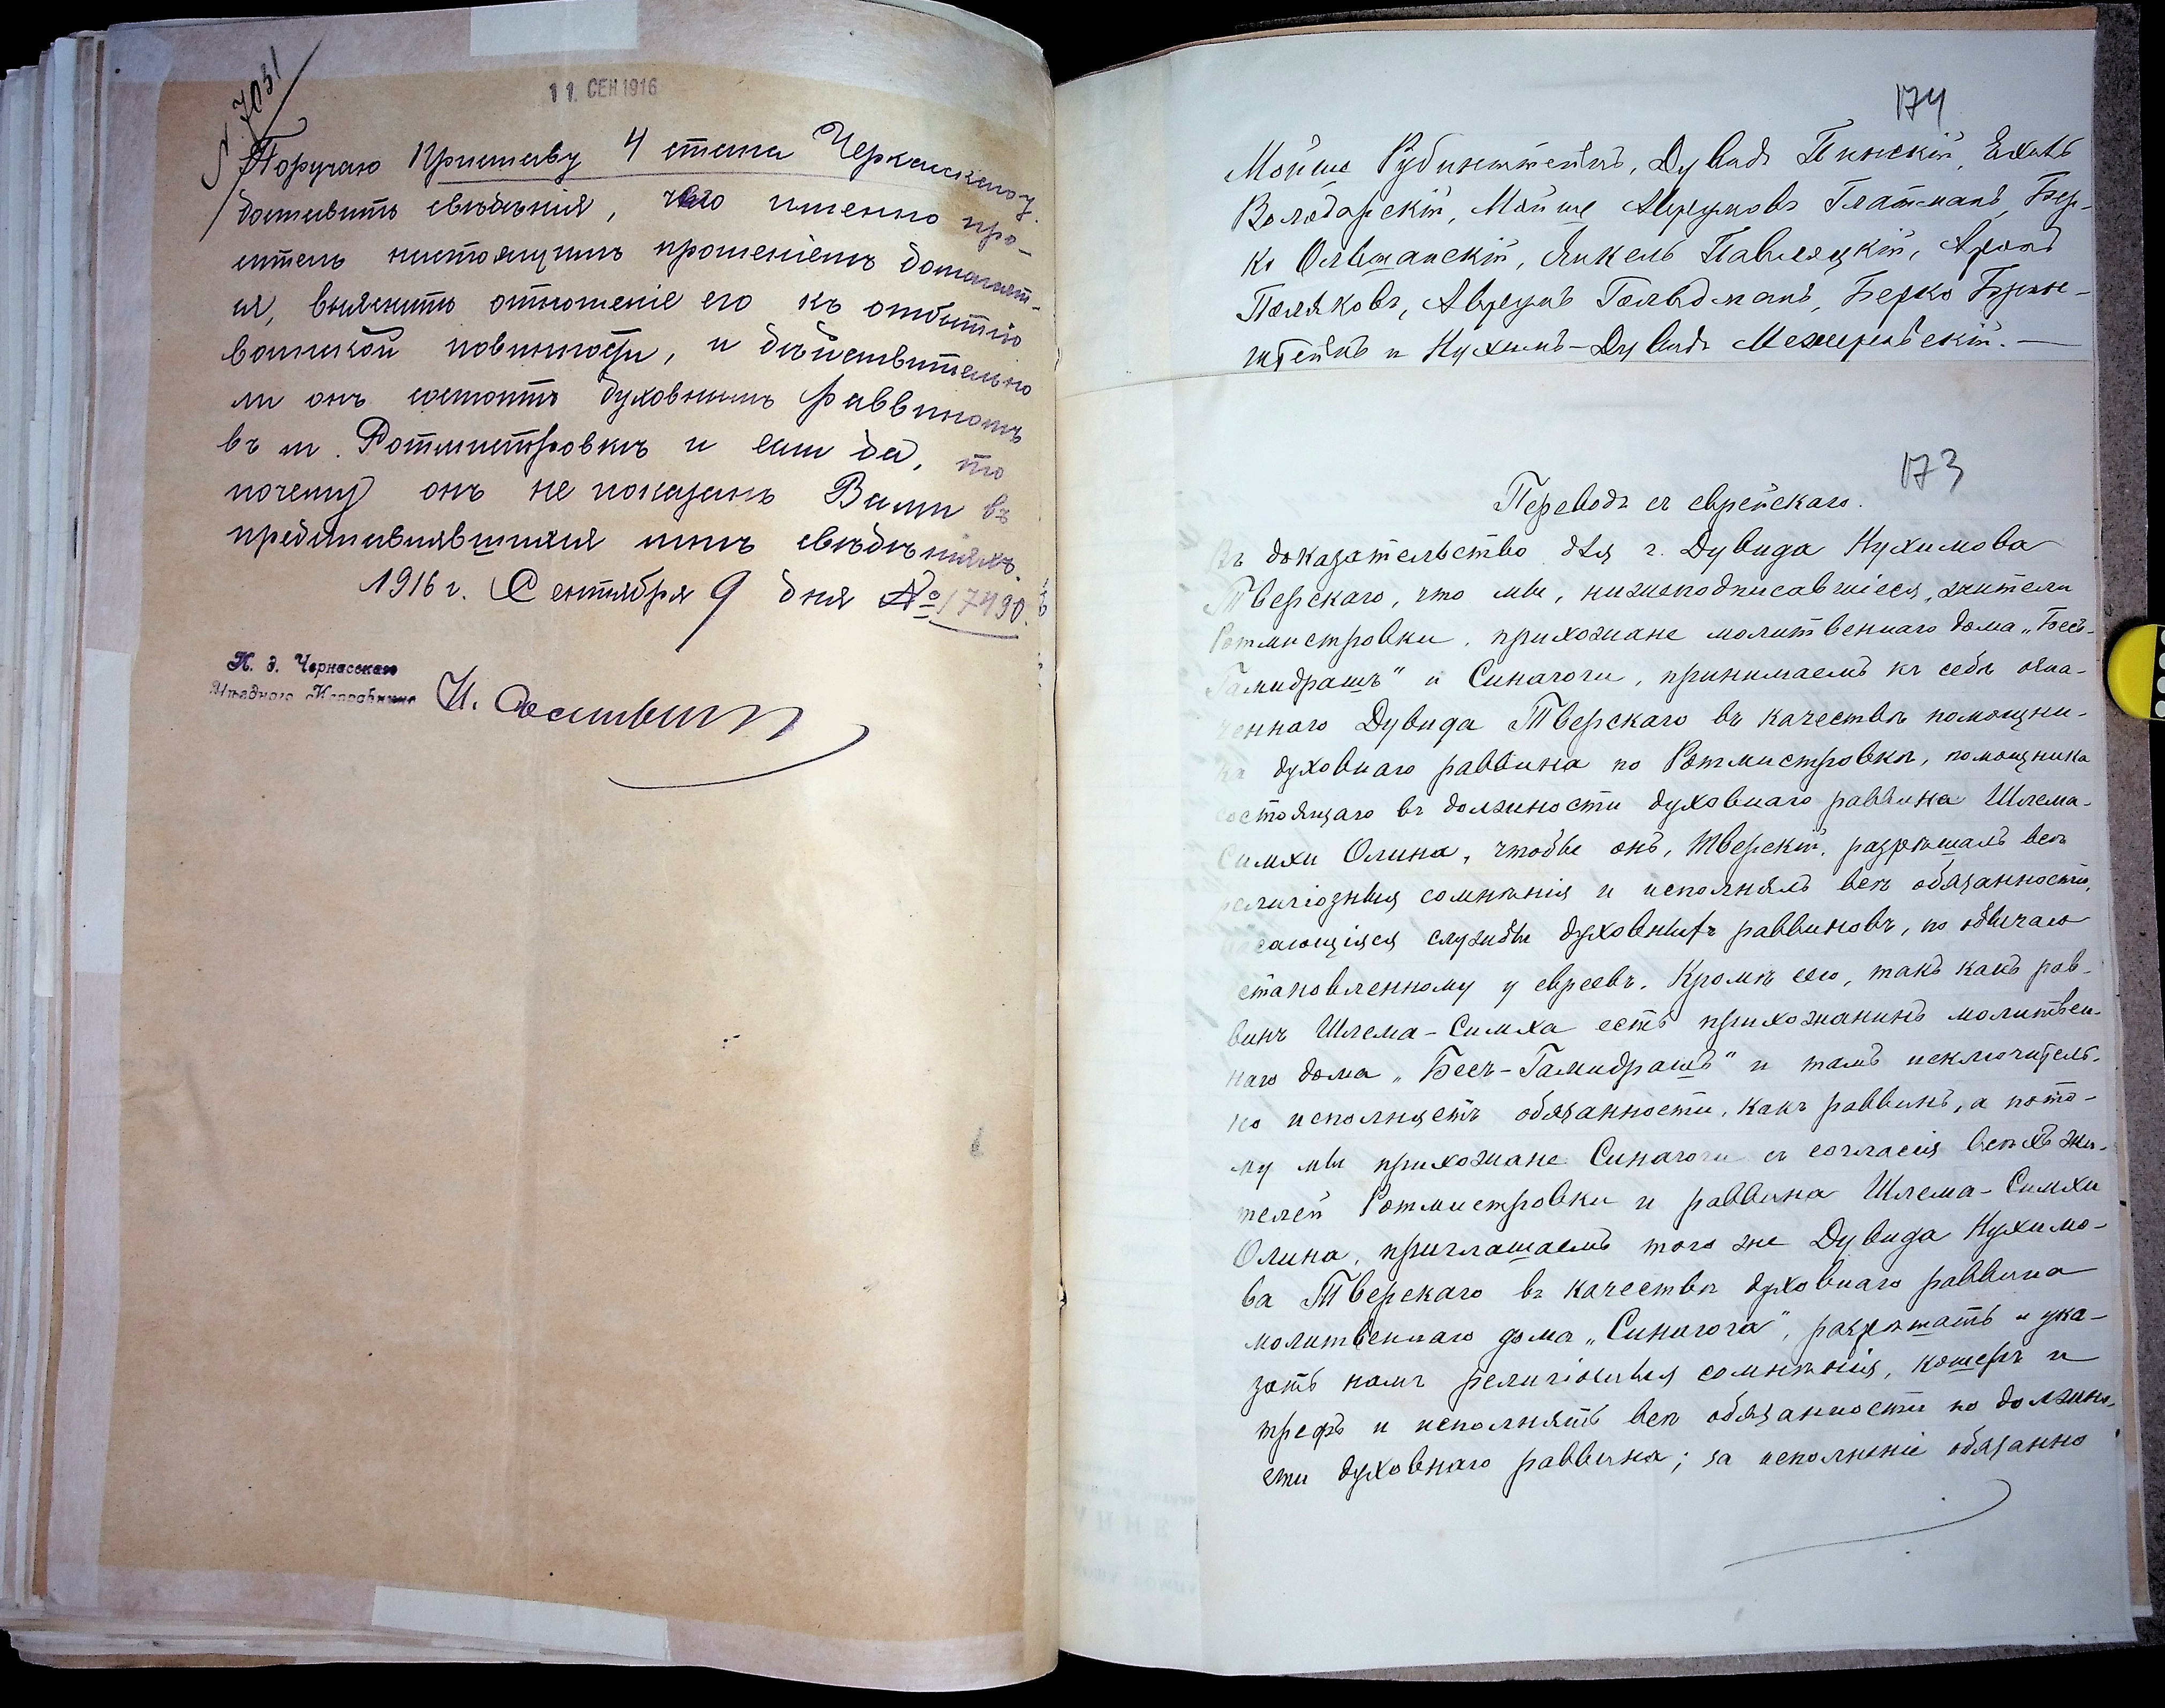 № 7031
11. СЕН 1916
Поручаю Приставу 4 стана Черкасскаго у.
доставить свѣдѣнія, чего именно про-
ситель настоящимъ прошеніемъ домогает-
ся, выяснить отношеніе его къ отбытію
воинской повинности, и дѣйствительно
ли онъ состоитъ духовнымъ раввиномъ
въ м. Ротмистровкѣ и если да, то
почему онъ не показанъ Вами въ
представлявшихся мнѣ свѣдѣніяхъ.
1916 г. Сентября 9 дня № 17490.
И. д. Черкасскаго
Уѣзднаго Исправника
174
Мойше Рубинштейнъ, Дувидъ Пинскій, Ехилъ
Володарскій, Мойше Аврумовъ Глатманъ, Бер-
ко Ольшанскій, Янкель Паволоцкій, Аронъ
Поляковъ, Аврумъ Гольдманъ, Берко Брин-
штейнъ и Нухимъ-Дувидъ Межеровскій. —
173
Переводъ съ еврейскаго.
Въ доказательство для г. Дувида Нухимова
Тверскаго, что мы, нижеподписавшіеся, жители
Ротмистровки, прихожане молитвеннаго дома „Бесъ-
Гамидрашъ" и Синагоги, принимаемъ къ себѣ озна-
ченнаго Дувида Тверскаго въ качествѣ помощни-
ка духовнаго раввина по Ротмистровкѣ, помощника
состоящаго въ должности духовнаго раввина Шлема-
Симхи Олина, чтобы онъ, Тверскій, разрѣшалъ всѣ
религіозныя сомнѣнія и исполнялъ всѣ обязанности,
касающіяся службы духовныхъ раввиновъ, по обычаю
становленному у евреевъ. Кромѣ сего, такъ какъ рав-
винъ Шлема-Симха есть прихожанинъ молитвен-
наго дома „Бесъ-Гамидрашъ" и тамъ исключитель-
но исполняетъ обязанности, какъ раввинъ, а пото-
му мы прихожане Синагоги съ согласія всѣхъ жи-
телей Ротмистровки и раввина Шлема-Симхи
Олина, приглашаемъ того же Дувида Нухимо-
ва Тверскаго въ качествѣ духовнаго раввина
молитвеннаго дома „Синагога", разрѣшать и ука-
зать намъ религіозныя сомнѣнія, кошеръ и
трефъ и исполнять всѣ обязанности по должно-
сти духовнаго раввина; за исполненіе обязанно